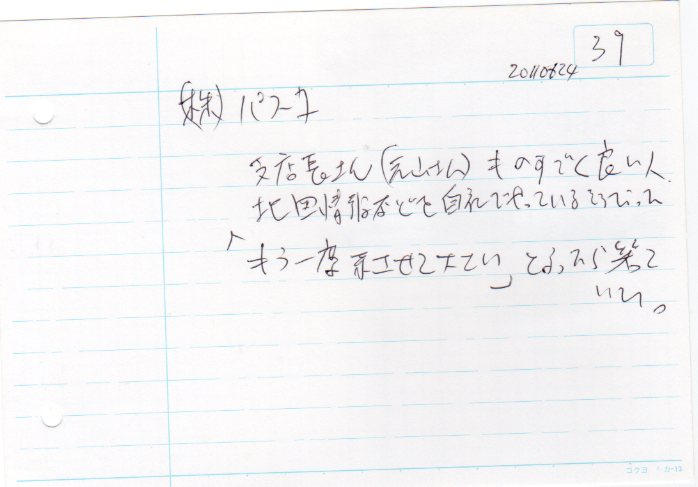 39
20110824
(株) パスコ
支店長さん(元山さん) ものすごく良い人
地図情報などを自社でやっているそうだった
「もう一度来させて下さい」と言ったら笑って
いた。
コクヨ